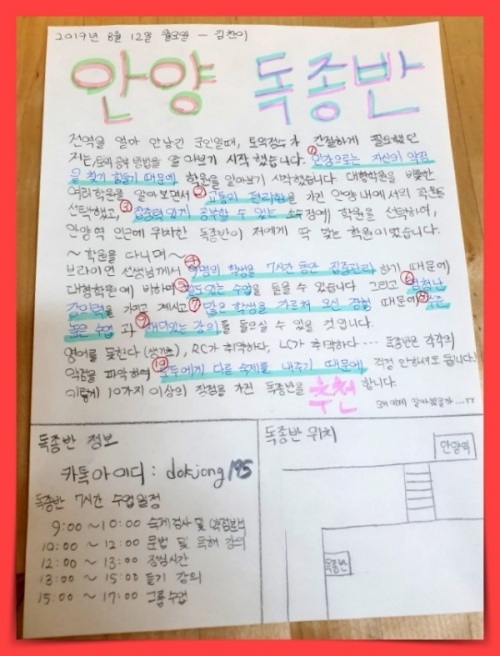 2019년 8월 12일 월요일 - 김찬이
안양 독종반
전역을 얼마 안남긴 군인일때, 토익점수가 간절하게 필요했던
저는 토익 공부 방법을 알아보기 시작했습니다. ① 인강으로는 자신의 약점
을 찾기 힘들기 때문에 학원을 알아보기 시작했습니다. 대형학원을 비롯한
여러학원을 알아보면서 ② 교통의 편리함을 가진 안양 내에서의 학원을
선택했고, ③ 집중력있게 공부할 수 있는 소수정예 학원을 선택하여,
안양역 인근에 위치한 독종반이 저에게 딱 맞는 학원이었습니다.
~ 학원을 다니며 ~
브라이언 선생님께서 ④ 명의 학생을 7시간 동안 집중관리 하기 때문에
대형학원에 비하여 ⑤ 밀도있는 수업을 들을 수 있습니다 그리고 ⑥
강의력을 가지고 계시고 ⑦ 많은 학생을 가르쳐 오신 경험 때문에 ⑧ 수준
높은 수업 과 ⑨ 재미있는 강의를 들으실 수 있을 것입니다.
영어를 못한다 (쌩기초), RC가 취약하다, LC가 취약하다 … 독종반은 각각의
약점을 파악하여 ⑩ 모두에게 다른 숙제를 내주기 때문에 걱정 안하셔도 됩니다!
이렇게 10가지 이상의 장점을 가진 독종반을 추천 합니다.
독종반 정보
카톡아이디 : dokjong195
독종반 7시간 수업일정
9:00 ~ 10:00 숙제검사 및
10:00 ~ 12:00 문법 및 독해 강의
12:00 ~ 13:00 점심시간
13:00 ~ 15:00 듣기 강의
15:00 ~ 17:00 그룹수업
독종반 위치
안양역
독종반